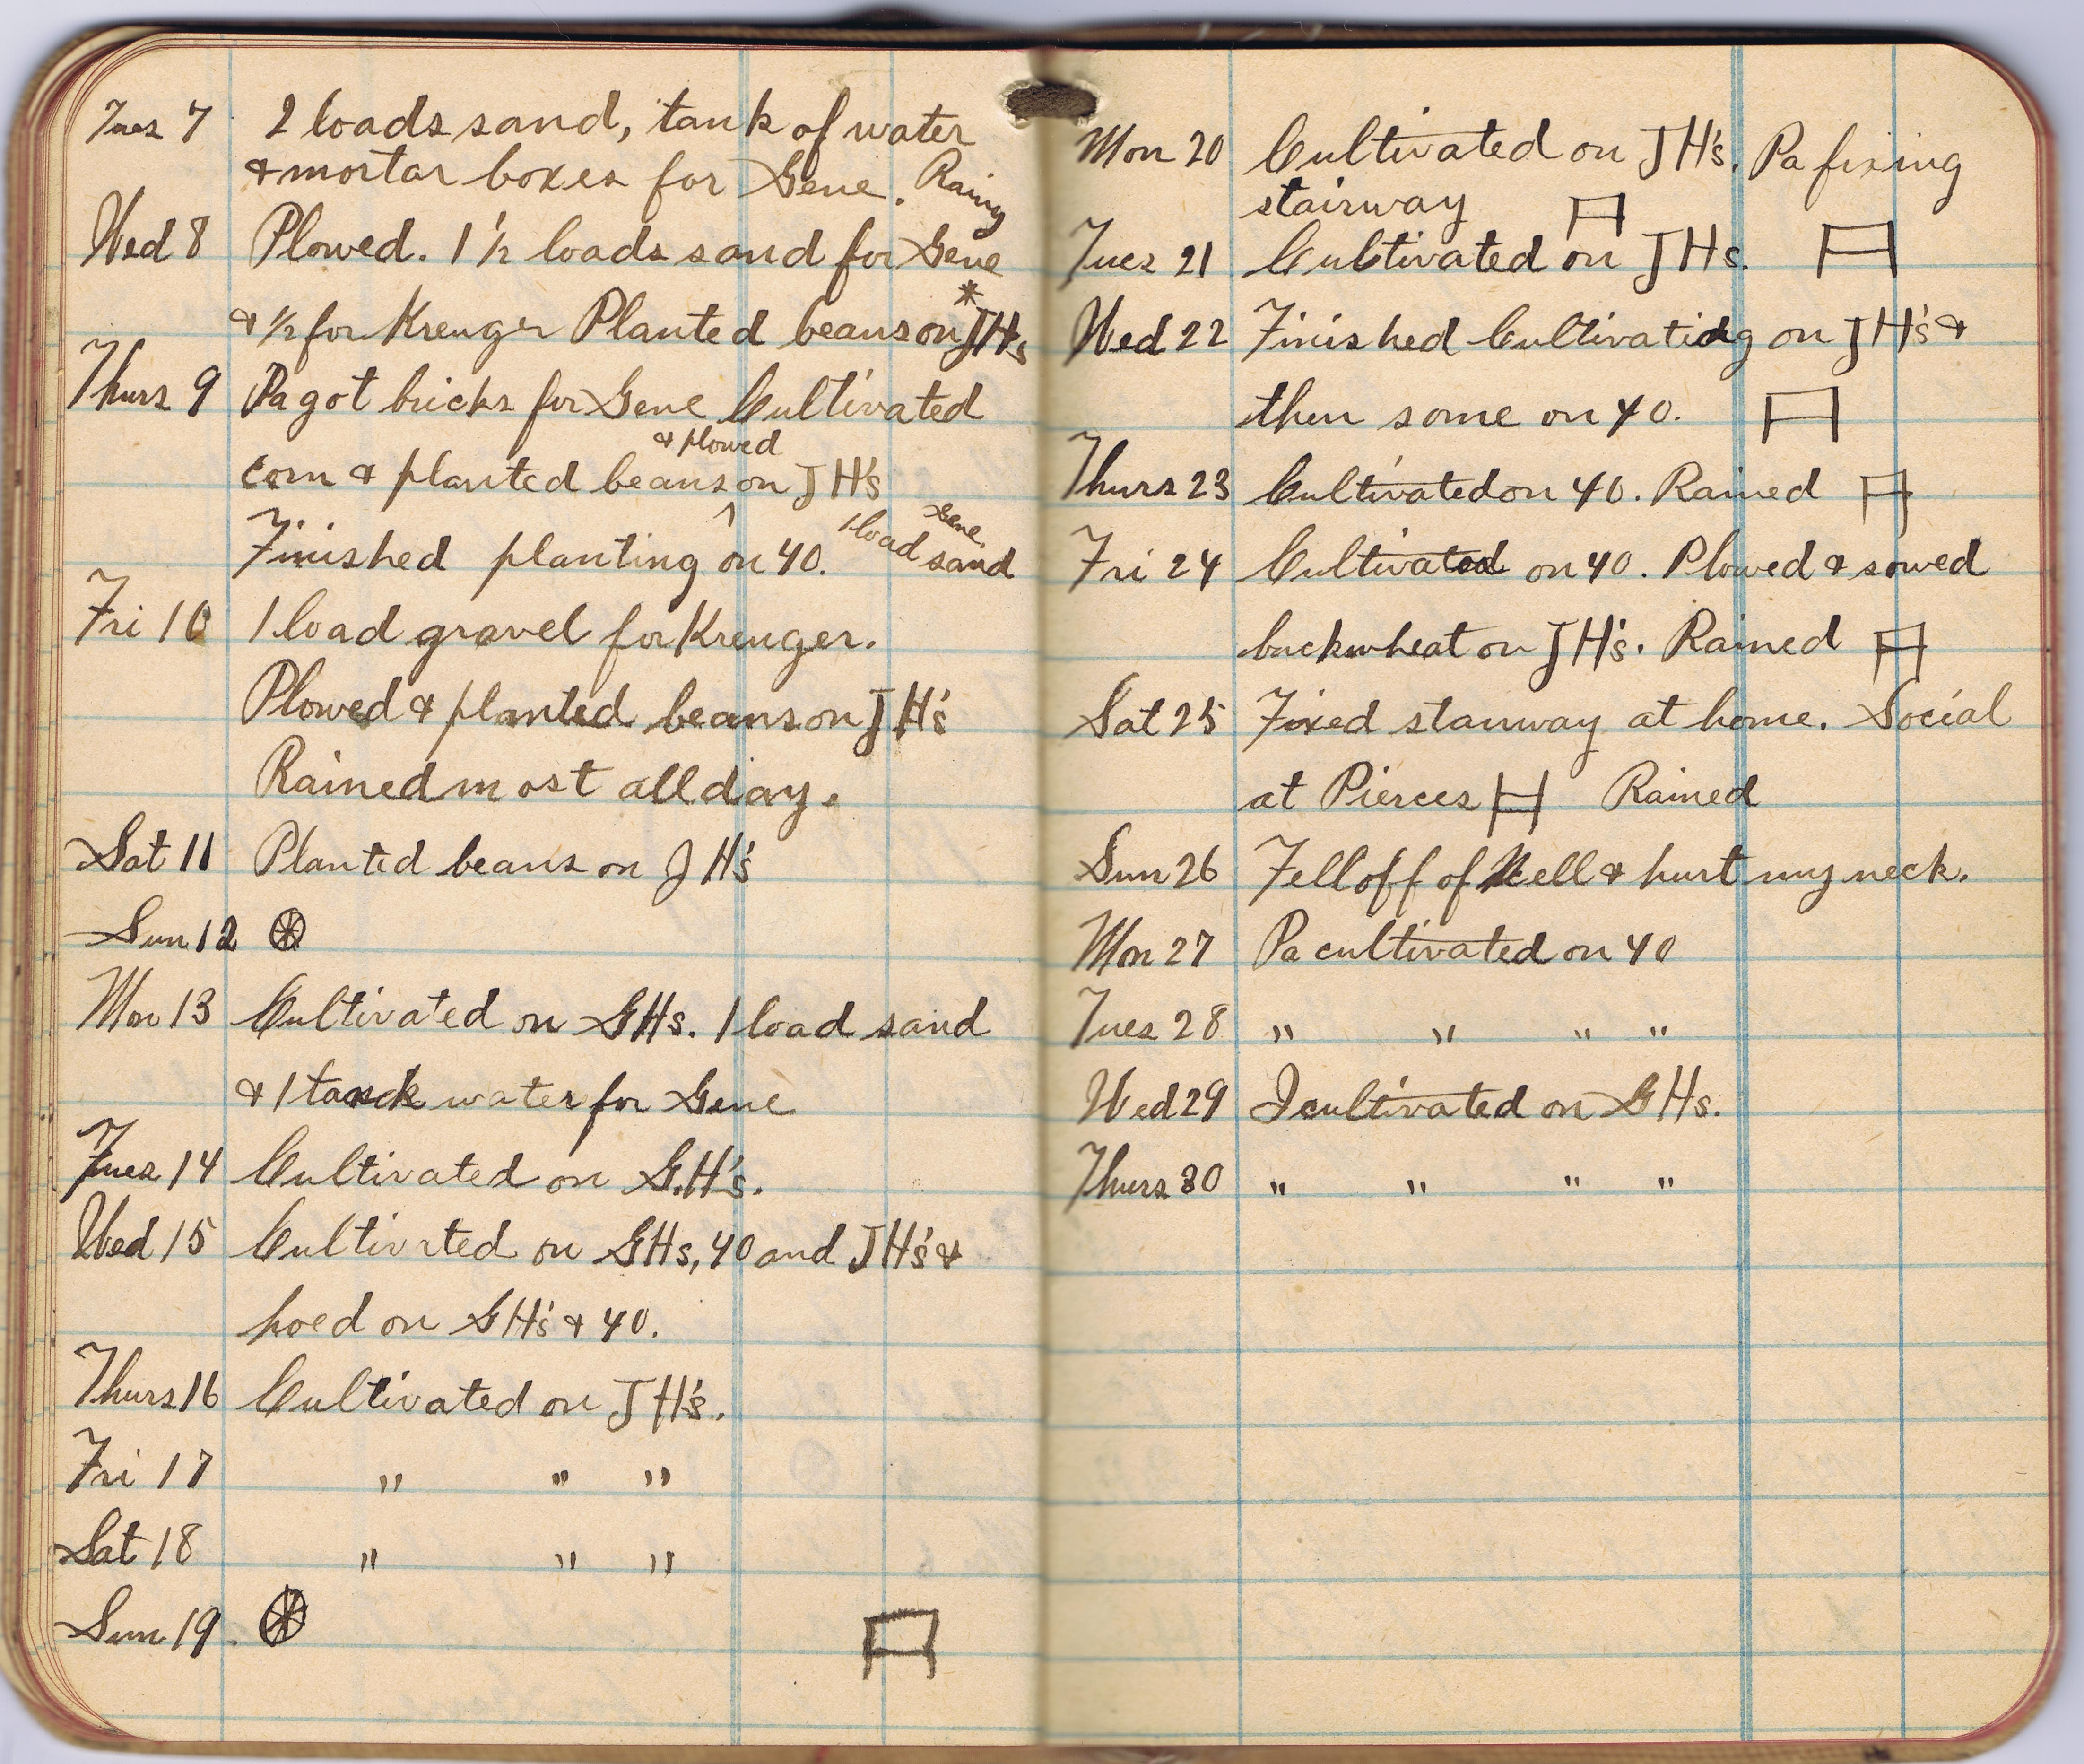 Tues 7 2 loads sand, tank of water
& mortar boxes for Gene. Rainy
Wed 8 Plowed. 1 1/2 loads sand for Gene
& 1/2 for Kreuger Planted beans on * JHs
Thurs 9 Pa got bricks for Gene Cultivated
& plowed
corn & planted beans on JH's
Finished planting ^ on 40. 1 load sand Gene.
Fri 10 1 load gravel for Kreuger.
Plowed & planted beans on JH's
Rained most all day.
Sat 11 Planted beans on JH's
Sun 12
Mon 13 Cultivated on GHs. 1 load sand
& 1 tank water for Gene
Tues 14 Cultivated on G.H's.
Wed 15 Cultivated on GHs, 40 and JH's &
hoed on GH's & 40.
Thurs 16 Cultivated on JH's.
Fri 17 " " "
Sat 18 " " "
Sun 19.
Mon 20 Cultivated on JH's. Pa fixing
stairway
Tues 21 Cultivated on JHs.
Wed 22 Finished Cultivating on JH's &
then some on 40.
Thurs 23 Cultivated on 40. Rained
Fri 24 Cultivated on 40. Plowed & sowed
buckwheat on JH's. Rained
Sat 25 Fixed stairway at home. Social
at Pierces Rained
Sun 26 Fell off of Nell & hurt my neck.
Mon 27 Pa cultivated on 40
Tues 28 " " " "
Wed 29 I cultivated on GHs.
Thurs 30 " " " "